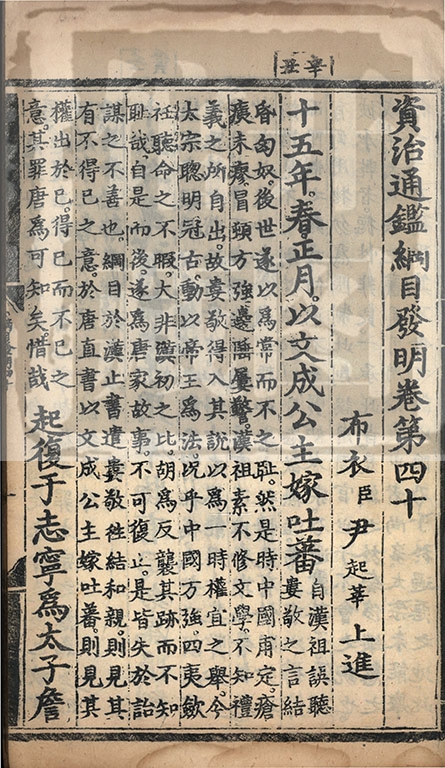 辛丑
資治通鑑綱目發明卷第四十
布衣臣尹起莘上進
十五年。春正月。以文成公主嫁吐蕃
自漢祖誤聽
婁敬之言結
昏匈奴。後世遂以爲常而不之恥。然是時中國甫定。瘡
痍未瘳。冒頓方強。邊陲屢警。漢祖素不修文學。不知禮
義之所自出。故婁敬得入其說。以爲一時權宜之舉。今
太宗聰明冠古。動以帝王爲法。況乎中國方強。四夷斂
衽聽命之不暇。大非漢初之比。胡爲反襲其跡而不知
恥哉。自是而後。遂爲唐家故事。不可復止。是皆失於詒
謀之不善也。綱目於漢止書遣婁敬徃結和親。則見其
有不得已之意。於唐直書以文成公主嫁吐蕃。則見其
權出於已。得已而不已之
意。其罪唐爲可知矣。惜哉
起復于志寧爲太子詹